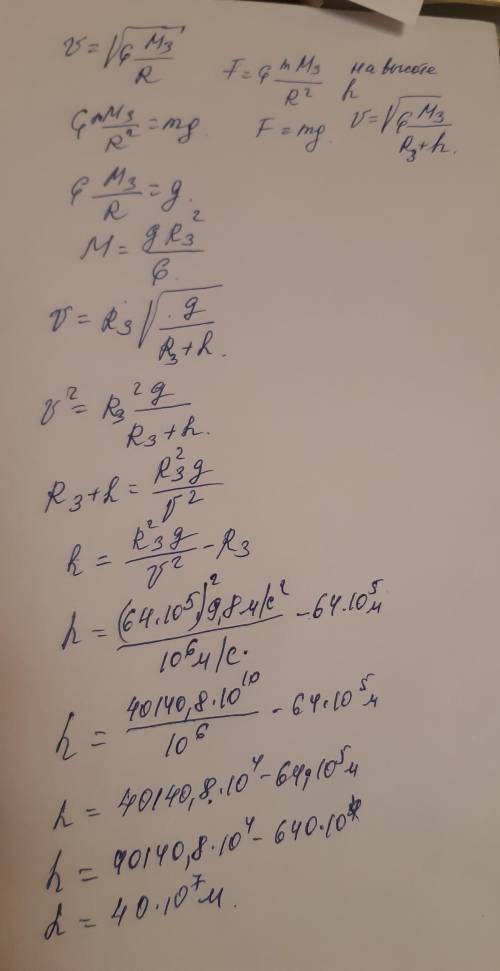 v = √(G M₃/R)
F = G mM₃/R² на высоте h
G mM₃/R² = mg.
F = mg. v = √(G M₃/(R₃+h)).
G M₃/R = g.
M = gR₃²/G.
v = R₃√(g/(R₃+h)).
v² = R₃² g/(R₃+h).
R₃+h = R₃²g/v²
h = R₃²g/v² - R₃
h = (64·10⁵)² 9,8 м/с²/10⁶ м/с. - 64·10⁵ м
h = 40140,8·10¹⁰/10⁶ - 64·10⁵ м
h = 40140,8·10⁴ - 64·10⁵ м
h = 40140,8·10⁴ - 640·10⁴
h = 40·10⁷ м.